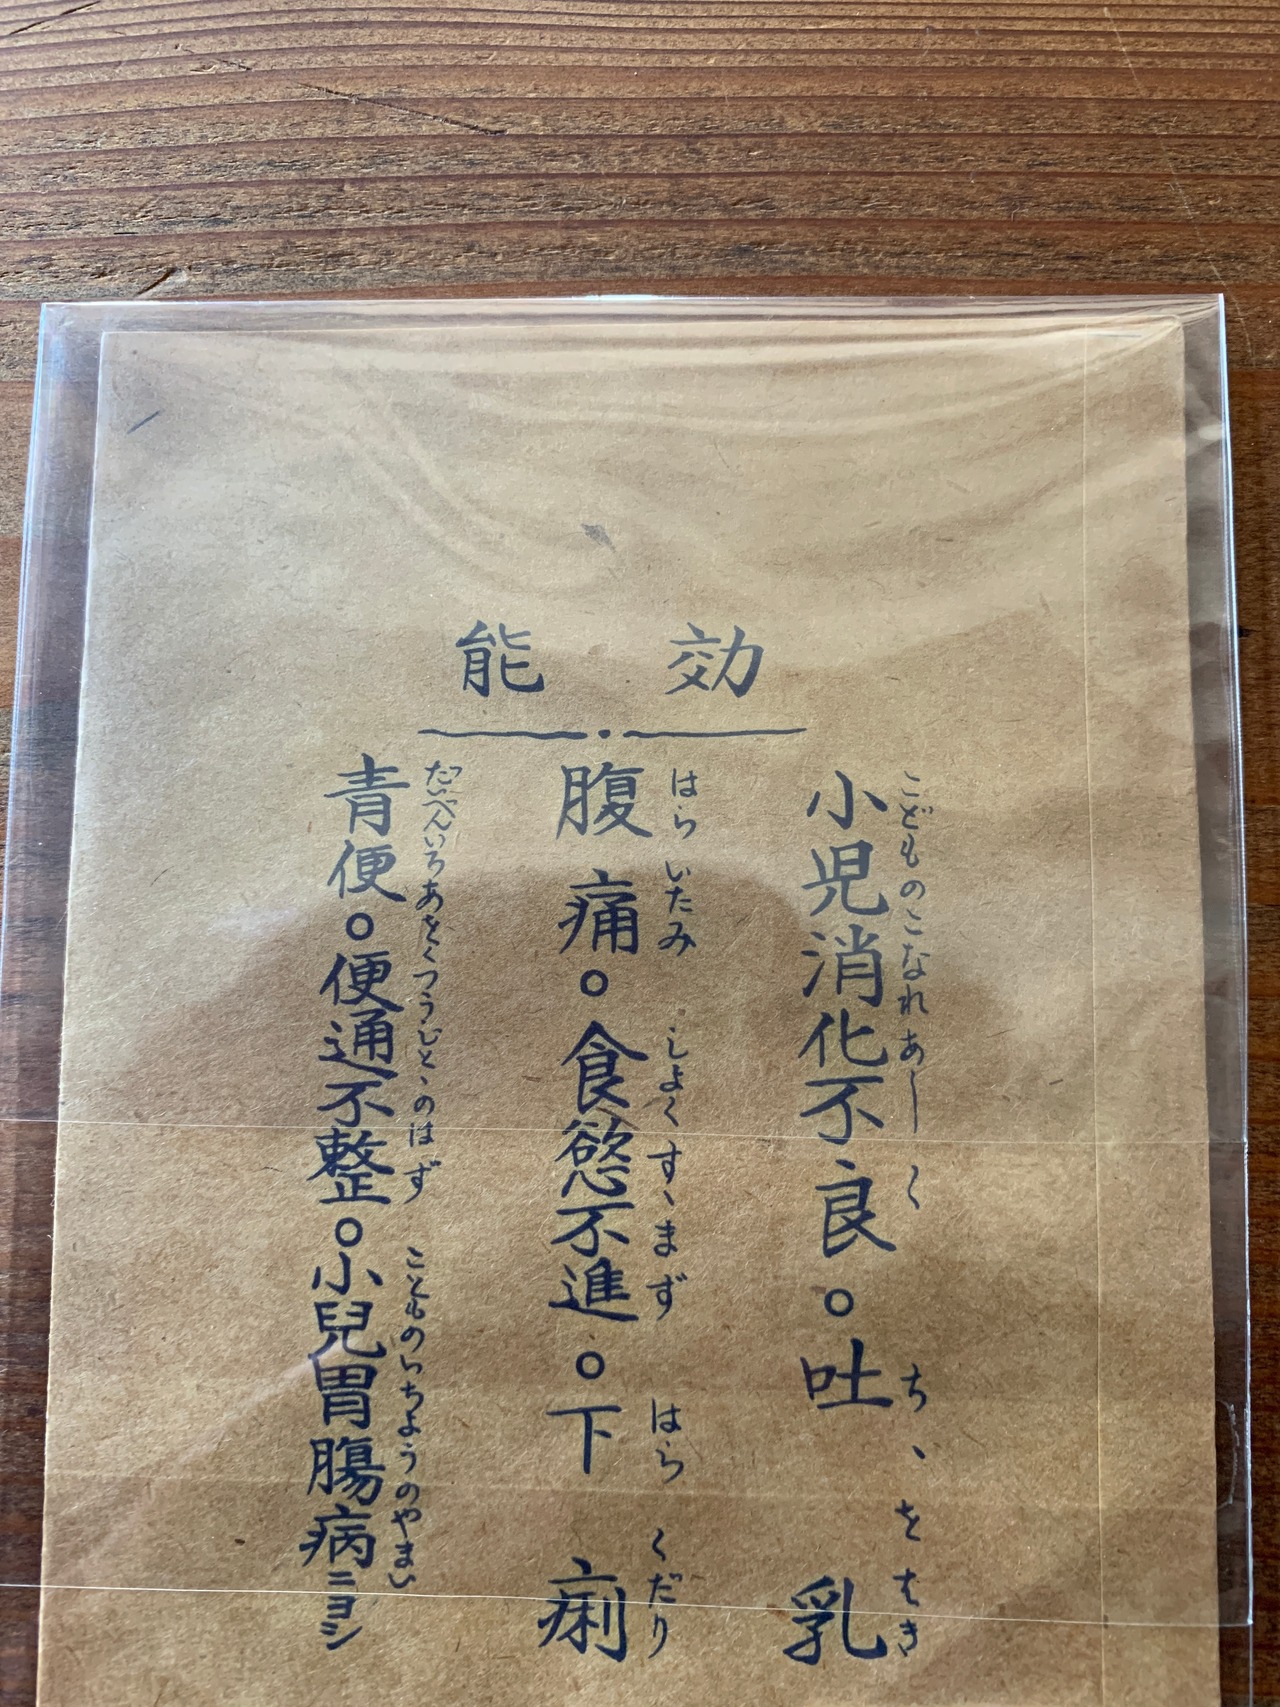 効能
小児消化不良。吐乳
こどものこなれあしく ちゝをはき
腹痛。食慾不進。下痢
はらいたみ しよくすゝまず はらくだり
青便。便通不整。小兒胃腸病ニヨシ
だいべんいろあをくつうじとゝのはず こどものいちようのやまい